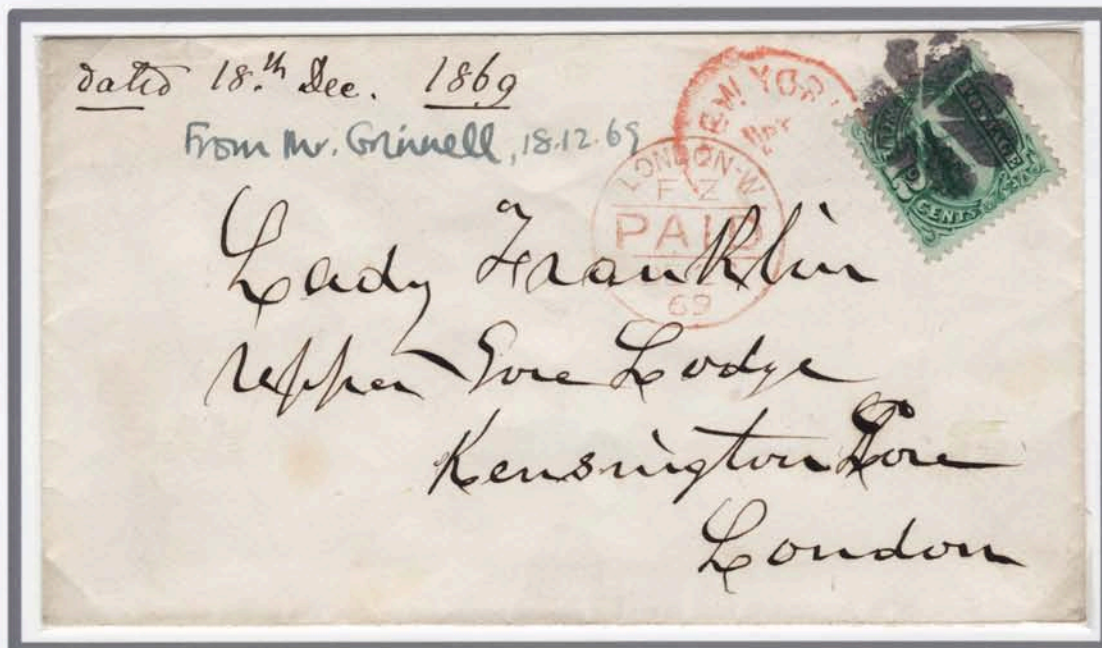 dated 18.th Dec. 1869
From Mr. Grinnell, 18.12.69
NEW YORK
LONDON-W
F Z
PAID
69
POSTAGE
CENTS
Lady Franklin
Upper Gore Lodge
Kensington Gore
London